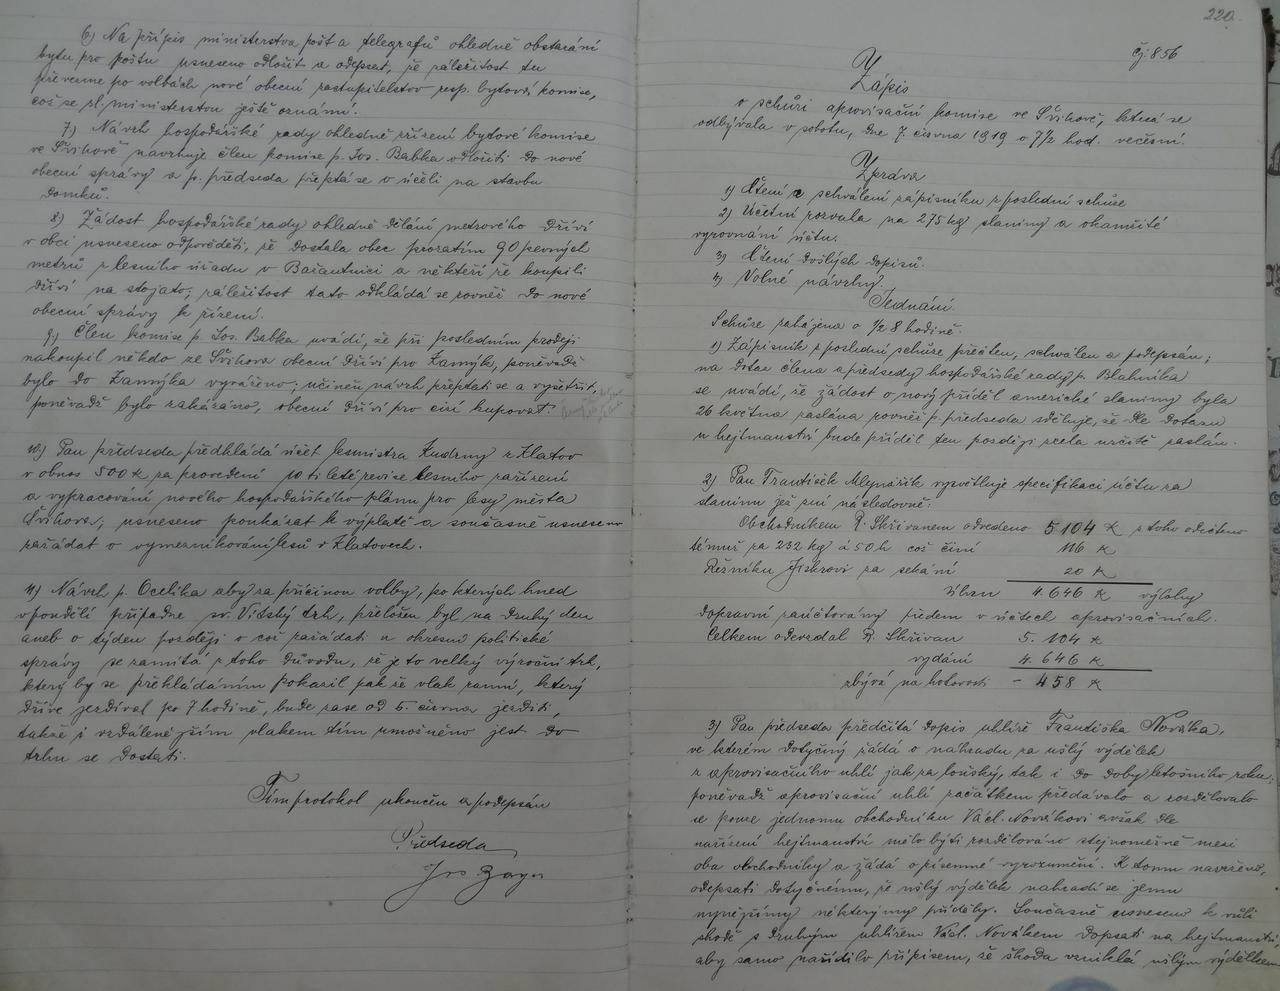 6) Na přípis ministerstva pošt a telegrafů ohledně obstarání
bytu pro poštu usneseno odložiti a odepsat, že záležitost tu
převezme po volbách nové obecní zastupitelstvo resp. bytová komise,
což se sl. ministerstvu ještě oznámí.
7) Návrh hospodářské rady ohledně zřízení bytové komise
ve Švihově navrhuje člen komise p. Jos. Babka odložiti do nové
obecní správy a p. předseda přeptá se o účeli na stavbu
domků.
8) Žádost hospodářské rady ohledně dělání metrového dříví
v obci usneseno odpověděti, že dostala obec prozatím 90 pevných
metrů z lesního úřadu v Bažantnici a někteří že koupili
dříví na stojato; záležitost tato odkládá se rovněž do nové
obecní správy k řízení.
9) Člen komise p. Jos. Babka uvádí, že při posledním prodeji
nakoupil někdo ze Švihova obecní dříví pro Zamýk, poněvadž
bylo do Zamýka vyváženo; učiněn návrh přeptati se a vyšetřit,
poněvadž bylo zakázáno, obecní dříví pro cizí kupovat.
10) Pan předseda předkládá účet lesmistra Kudrny z Klatov
v obnos 500 K za provedení 10 ti leté revise lesního zařízení
a vypracování nového hospodářského plánu pro lesy města
Švihova; usneseno poukázat k výplatě a současně usneseno
zažádat o vymezníkování lesů v Klatovech.
11) Návrh p. Ocelíka aby za příčinou volby, po kterých hned
v pondělí připadne sv. Vítský trh, přeložen byl na druhý den
aneb o týden později o což zažádati u okresní politické
správy se zamítá z toho důvodu, že je to velký výroční trh,
který by se překládáním pokazil pak že vlak ranní, který
dříve jezdíval po 7 hodině, bude zase od 5. června jezditi,
takže i vzdálenějším vlakem tím umožněno jest do
trhu se dostati.
Tím protokol ukončen a podepsán
Předseda
Jos
220.
čj. 856
Zápis
o schůzi aprovisační komise ve Švihově, která se
odbývala v sobotu, dne 7. června 1919 o 7 1/2 hod. večerní.
Zpráva
1) Čtení a schválení zápisníku z poslední schůze
2) Účetní rozvaha na 275 kg slaniny a okamžité
vyrovnání účtu.
3) Čtení došlých dopisů.
4) Volné návrhy.
Jednání.
Schůze zahájena o 1/2 8 hodině.
1) Zápisník z poslední schůze přečten, schválen a podepsán;
na dotaz člena a předsedy hospodářské rady p. Blahníka
se uvádí, že žádost o nový příděl americké slaniny byla
26 května zaslána rovněž p. předseda sděluje, že dle dotazu
u hejtmanství bude příděl ten později zcela určitě zaslán.
2) Pan František Mlynařík vysvětluje specifikaci účtu za
slaninu jež zní následovně:
Obchodníkem R. Skřivanem odvedeno 5104 K z toho odečteno
témuž za 232 kg á 50 h což činí 116 K
Řezníku Jiskrovi za sekání 20 K
4.646 K výlohy
dopravní zaúčtovány předem v účtech aprovisačních.
Celkem odevzdal R. Skřivan 5.104 K
vydání 4.646 K
zbývá na hotovosti - 458 K
3) Pan předseda předčítá dopis uhlíře Františka Nováka,
ve kterém dotyčný žádá o náhradu za ušlý výdělek
z aprovisačního uhlí jak za loňský, tak i do doby letošního roku;
poněvadž aprovisační uhlí začátkem předávalo a rozdělovalo
se pouze jednomu obchodníku Václ. Novákovi avšak dle
nařízení hejtmanství mělo býti rozdělováno stejnoměrně mezi
oba obchodníky a žádá o písemné vyrozumění. K tomu navrženo,
odepsati dotyčnému, že ušlý výdělek nahradí se jemu
nynějšímy některýmy příděly. Současně usneseno k vůli
shodě s druhým uhlířem Václ. Novákem dopsati na hejtmanství,
aby samo nařídilo přípisem, že škoda vzniklá ušlým výdělkem